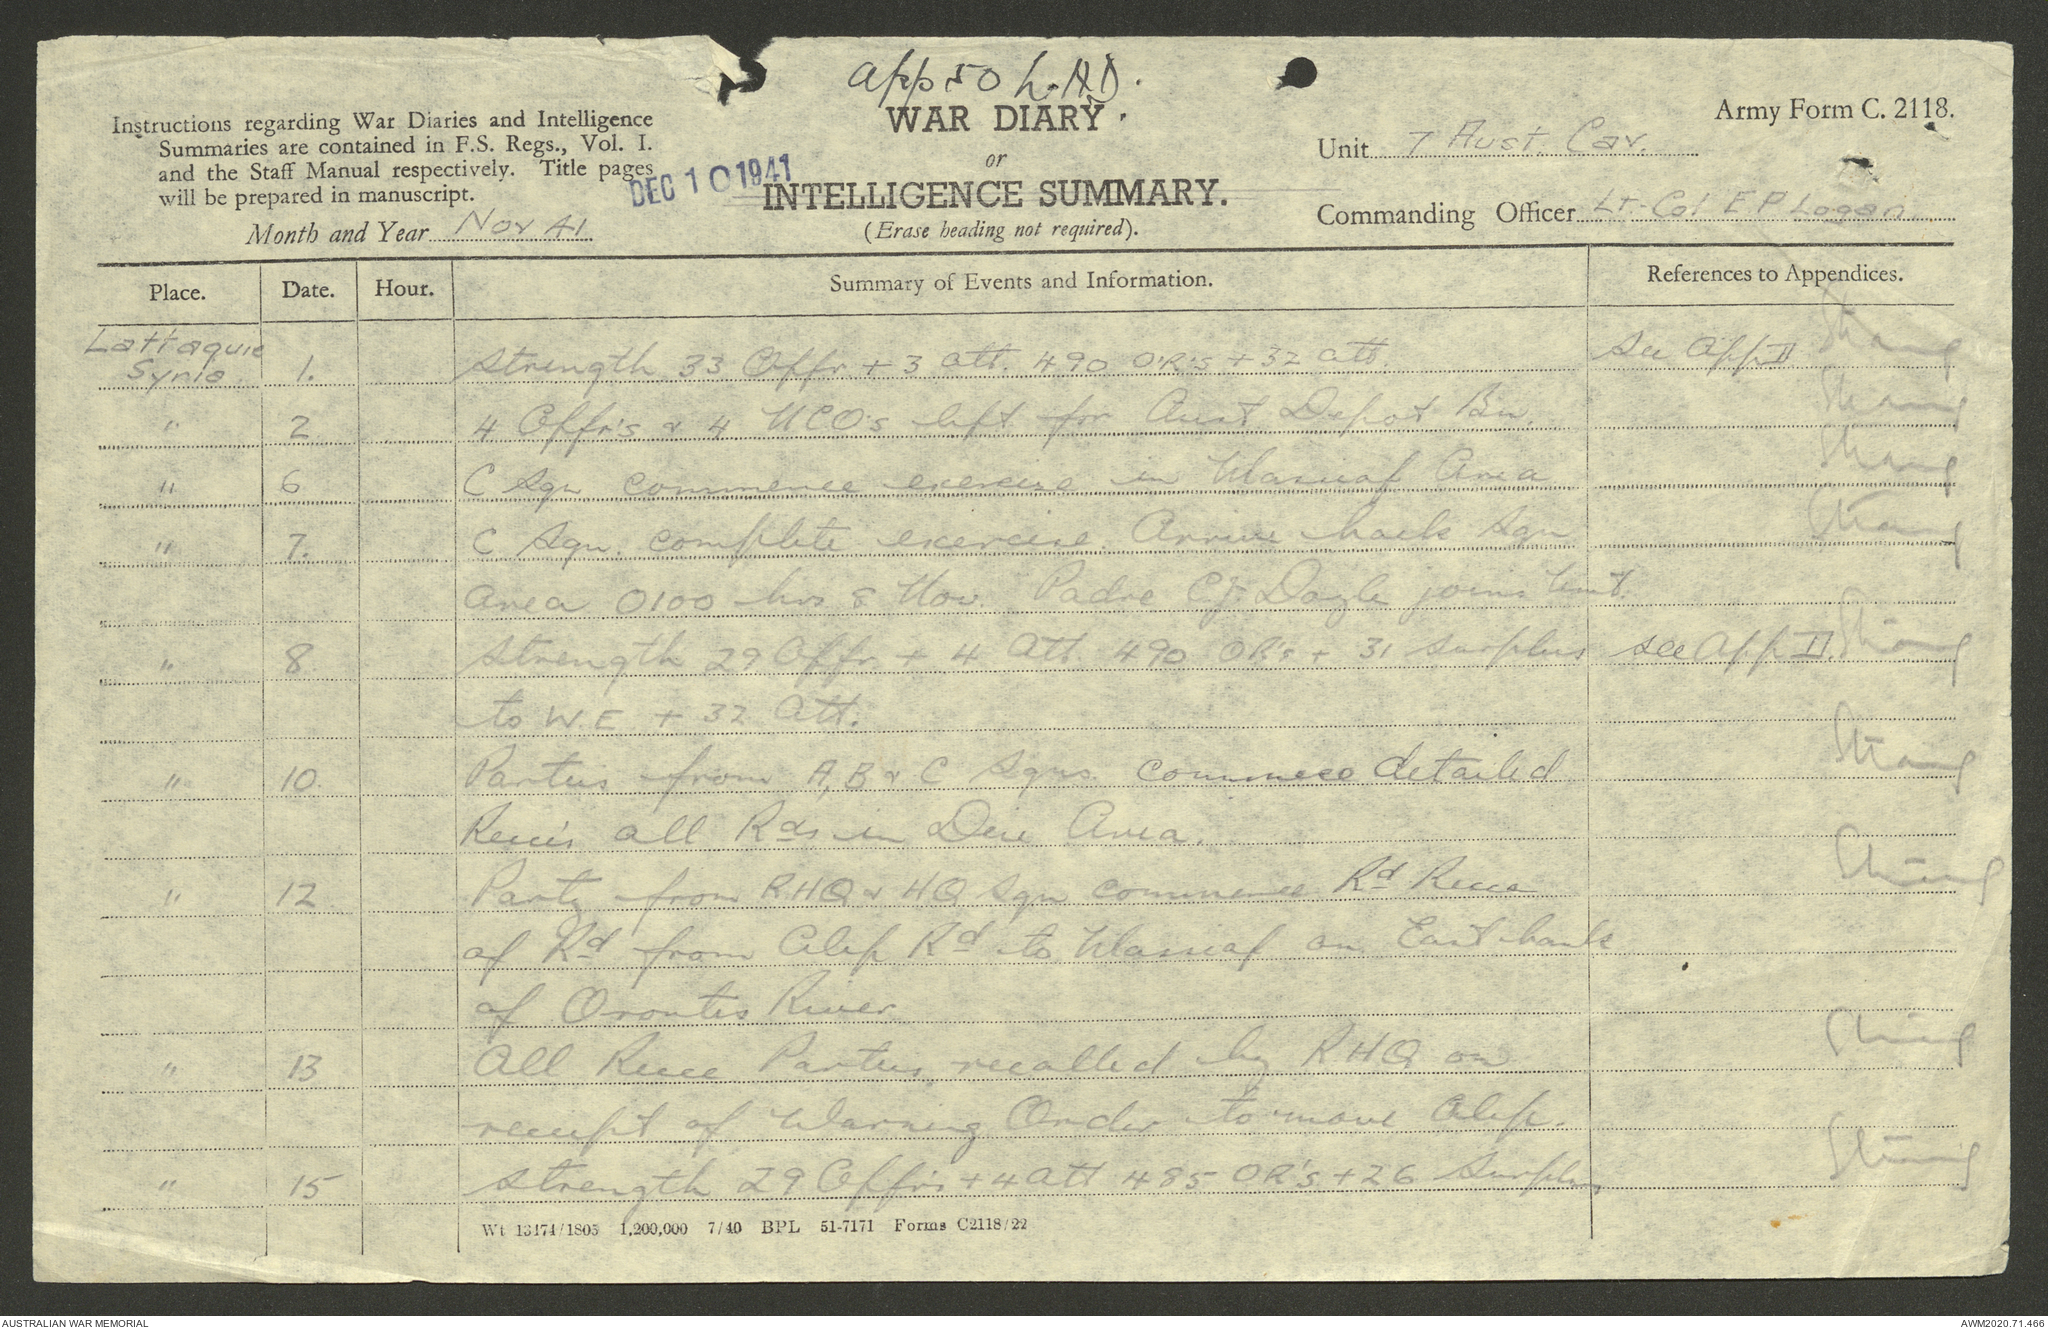 app 50 L.A.D.
Instructions regarding War Diaries and Intelligence
Summaries are contained in F.S. Regs., Vol. I.
and the Staff Manual respectively. Title pages
will be prepared in manuscript.
Month and Year Nov 41
DEC 10 1941
WAR DIARY
or
INTELLIGENCE SUMMARY.
(Erase heading not required).
Army Form C. 2118.
Unit 7 Aust. Cav.
Commanding Officer Lt-Col E.P. Logan
Place. Date. Hour. Summary of Events and Information. References to Appendices.
Lattaquie
Syria. 1. Strength 33 Offr. + 3 att. 490 OR's + 32 att. See App II
" 2 4 Offr's & 4 NCO's left for Aust. Depot Bn.
" 6 C Sqn commence exercise in Massiaf Area
" 7. C Sqn. complete exercise. Arrive back Sqn
Area 0100 hrs 8 Nov. Padre C.J. Doyle joins Unit.
" 8 Strength 29 Offr + 4 Att. 490 OR's + 31 surplus see App II.
to W.E. + 32 Att.
" 10. Parties from A, B & C Sqns. commece detailed
Recce's all Rds in Div Area.
" 12 Party from RHQ & HQ Sqn commence Rd Recce
of Rd from Alep Rd to Massiaf on East bank
of Orontes River
" 13 All Recce Parties recalled by RHQ on
receipt of Warning Order to move Alep.
" 15 Strength 29 Offr's + 4 att 485 OR's + 26 Surplus
Wt 13474/1805 1,200,000 7/40 BPL 51-7171 Forms C2118/22
AUSTRALIAN WAR MEMORIAL
AWM2020.71.466